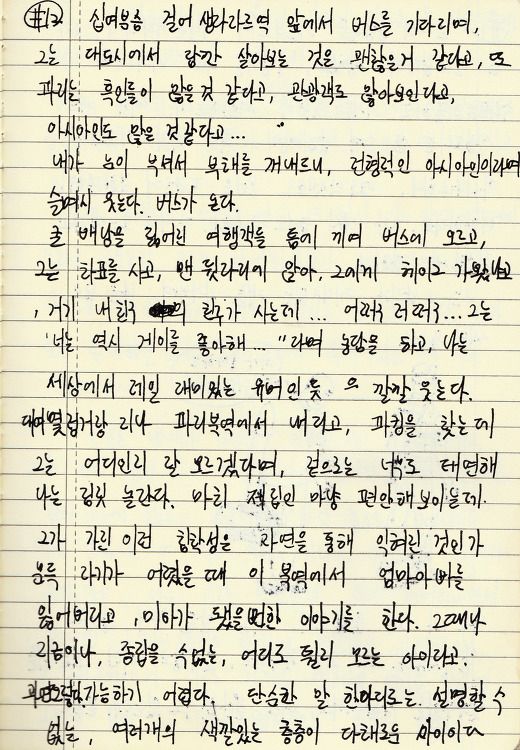 #12 십여분쯤 걸어 생라자르역 앞에서 버스를 기다리며,
그는 대도시에서 잠깐 살아보는 것은 괜찮을거 같다고, 또
파리는 흑인들이 많을것 같다고, 관광객도 많아보인다고,
아시아인도 많을 것 같다고...
내가 눈이 부셔서 부채를 꺼내드니, 전형적인 아시아인이라며
슬며시 웃는다. 버스가 온다.
큰 배낭을 짊어진 여행객들 틈에 끼여 버스에 오르고,
그는 차표를 사고, 맨 뒷자리에 앉아. 그에게 헤이그 가봤냐고
, 거기 내 친구의 친구가 사는데 ... 어쩌구 저쩌구... 그는
"너는 역시 게이를 좋아해..." 라며 농담을 하고, 나는
세상에서 제일 재미있는 유머인 듯 깔깔 웃는다.
몇정거장 지나 파리북역에서 내리고, 파킹을 찾는데
그는 어디인지 잘 모르겠다며, 겉으로는 태연해
나는 짐짓 놀란다. 마치 제집인 마냥 편안해보이는데.
그가 가진 이런 침착성은 자연을 통해 익혀진 것인가
문득 자기가 어렸을 때 이 북역에서 엄마아빠를
잃어버리고, 미아가 됐을뻔한 이야기를 한다. 그때나
지금이나, 종잡을 수없는, 어디로 튈지 모르는 아이라고.
가능하기 어렵다. 단순한 말 한마디로는 설명할 수
없는, 여러개의 색깔있는 층층이 다채로운 아이이다